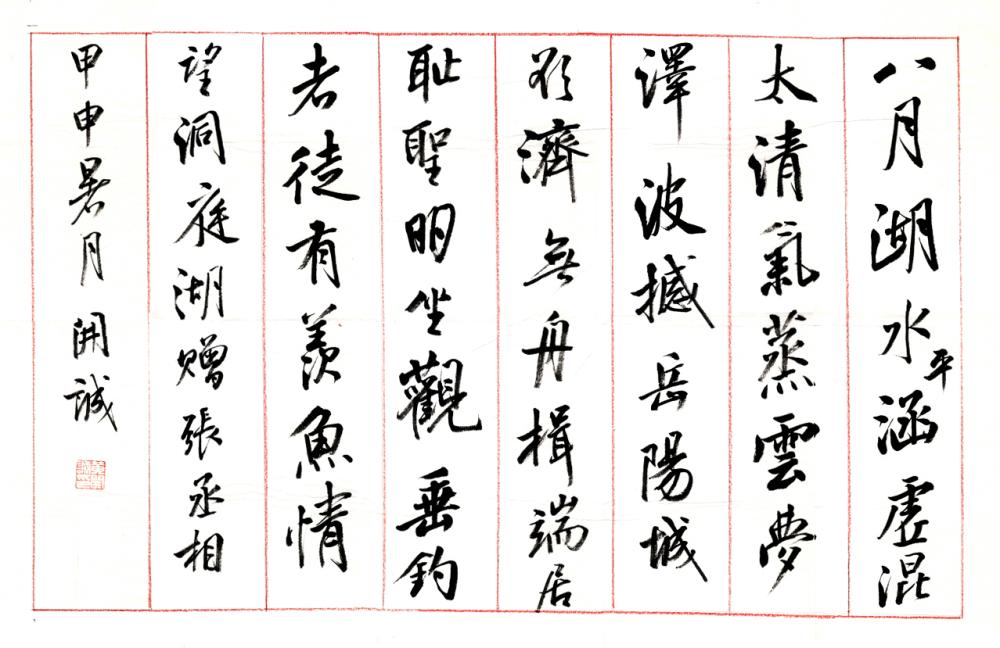 八月湖水平涵虚混
太清氣蒸雲夢
澤波撼岳陽城
欲濟無舟楫端居
耻聖明坐觀垂釣
者徒有羨魚情
望洞庭湖贈張丞相
甲申暑月開誠